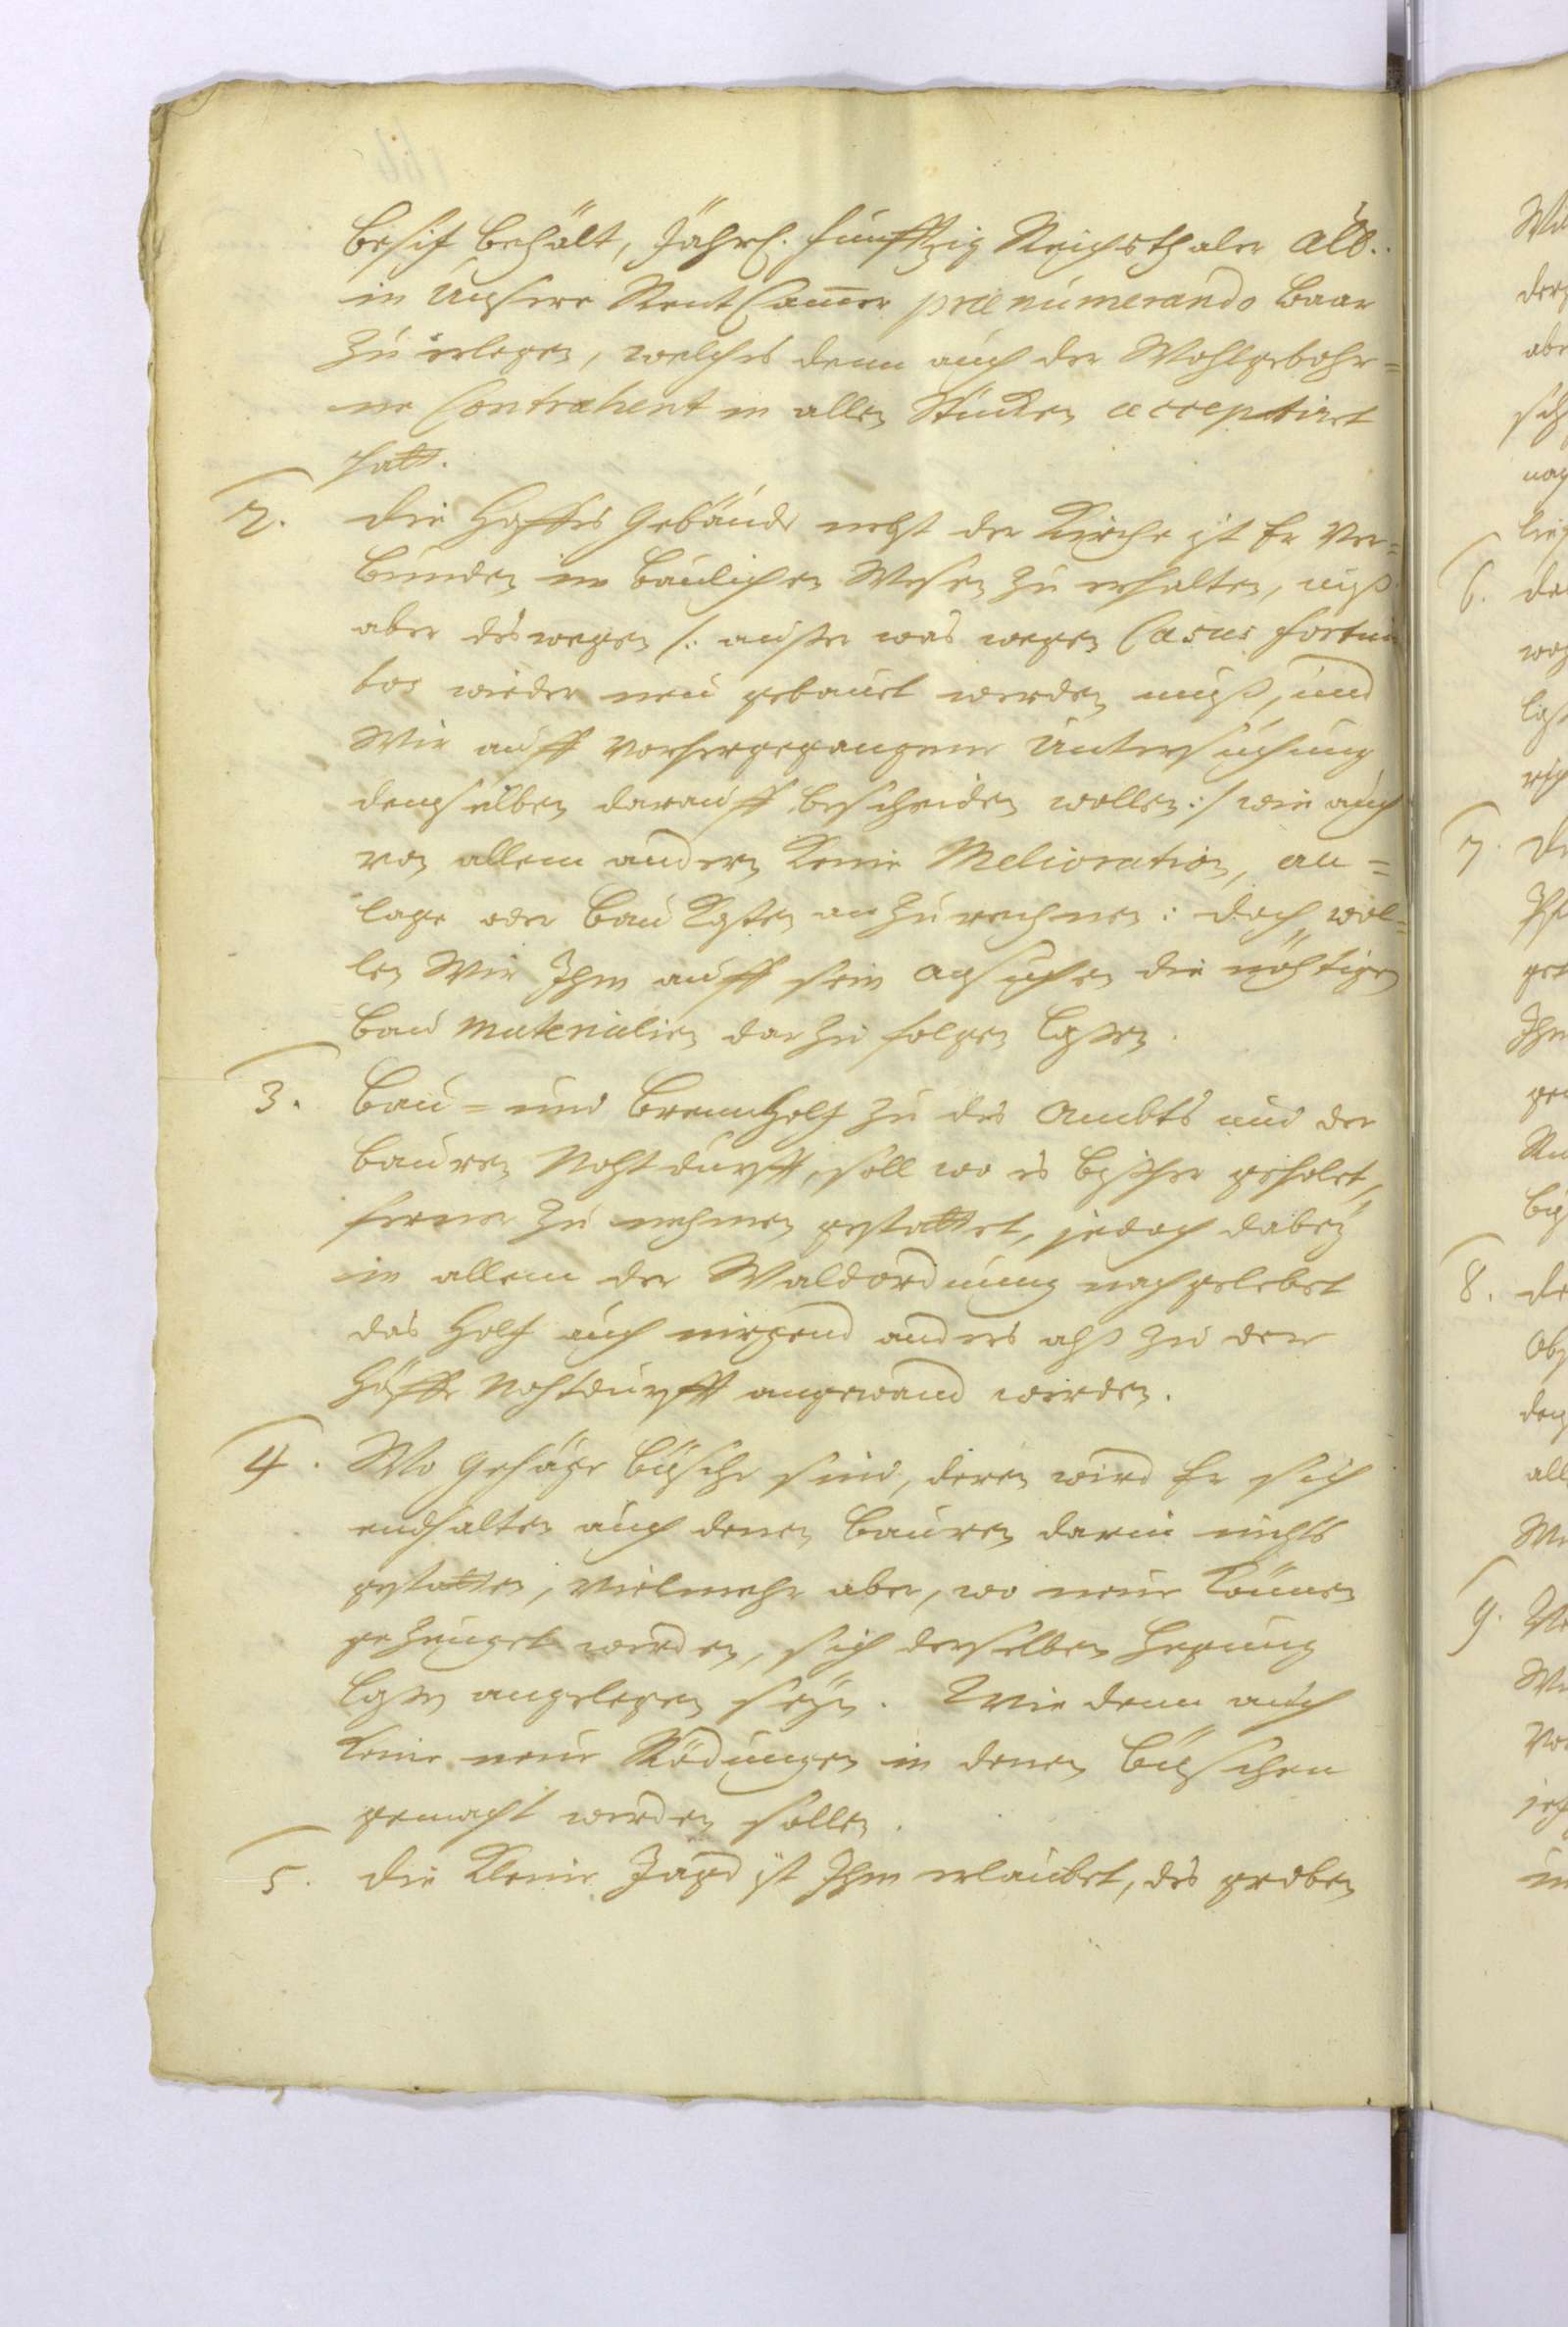 besitz behält, Jährl. funfftzig Reichsthaler Alb.
in Unsere RentCam̅er prænumerando baar
zu erlegen, welches denn auch der Wohlgebohr=
ne Contrahent in allen Stücken acceptiret
hatt.
2. Die Hoffes Gebäude nebst der Kirche ist Er ver=
bunden im baulichen Wesen zu erhalten, muß
aber deswegen /: außer was wegen Casus fortui
tos wieder neu gebauet werden muß, und
Wir auff vorhergegangene Untersuchung
denselben darauff bescheiden wollen :/ wie auch
von allem andern keine Melioration, an=
lage oder bau Kosten anzurechnen: doch wol=
len Wir Ihm auff sein ansuchen die nöhtigen
bau materialien darzu folgen laßen.
3. Bau= und Brennholtz zu des Ambts und der
bauren Nohtdurfft, soll wo es bißher geholet,
ferner zu nehmen gestattet, jedoch dabeÿ
in allem der Waldordnung nachgelebet
das Holtz auch nirgend anders alß zu der
Höffe Nohtdurfft angewand werden.
4. Wo Gehäge büsche sind, deren wird Er sich
endhalten auch denen bauren darin nichts
gestatten, vielmehr aber, wo neue können
gezeuget werden, sich derselben Hegung
laßen angelegen seyn. Wie denn auch
keine neue Rödungen in denen büschen
gemacht werden sollen.
5. Die Kleine Jagd ist Ihm erlaubet, des groben
6.
7.
8.
9.